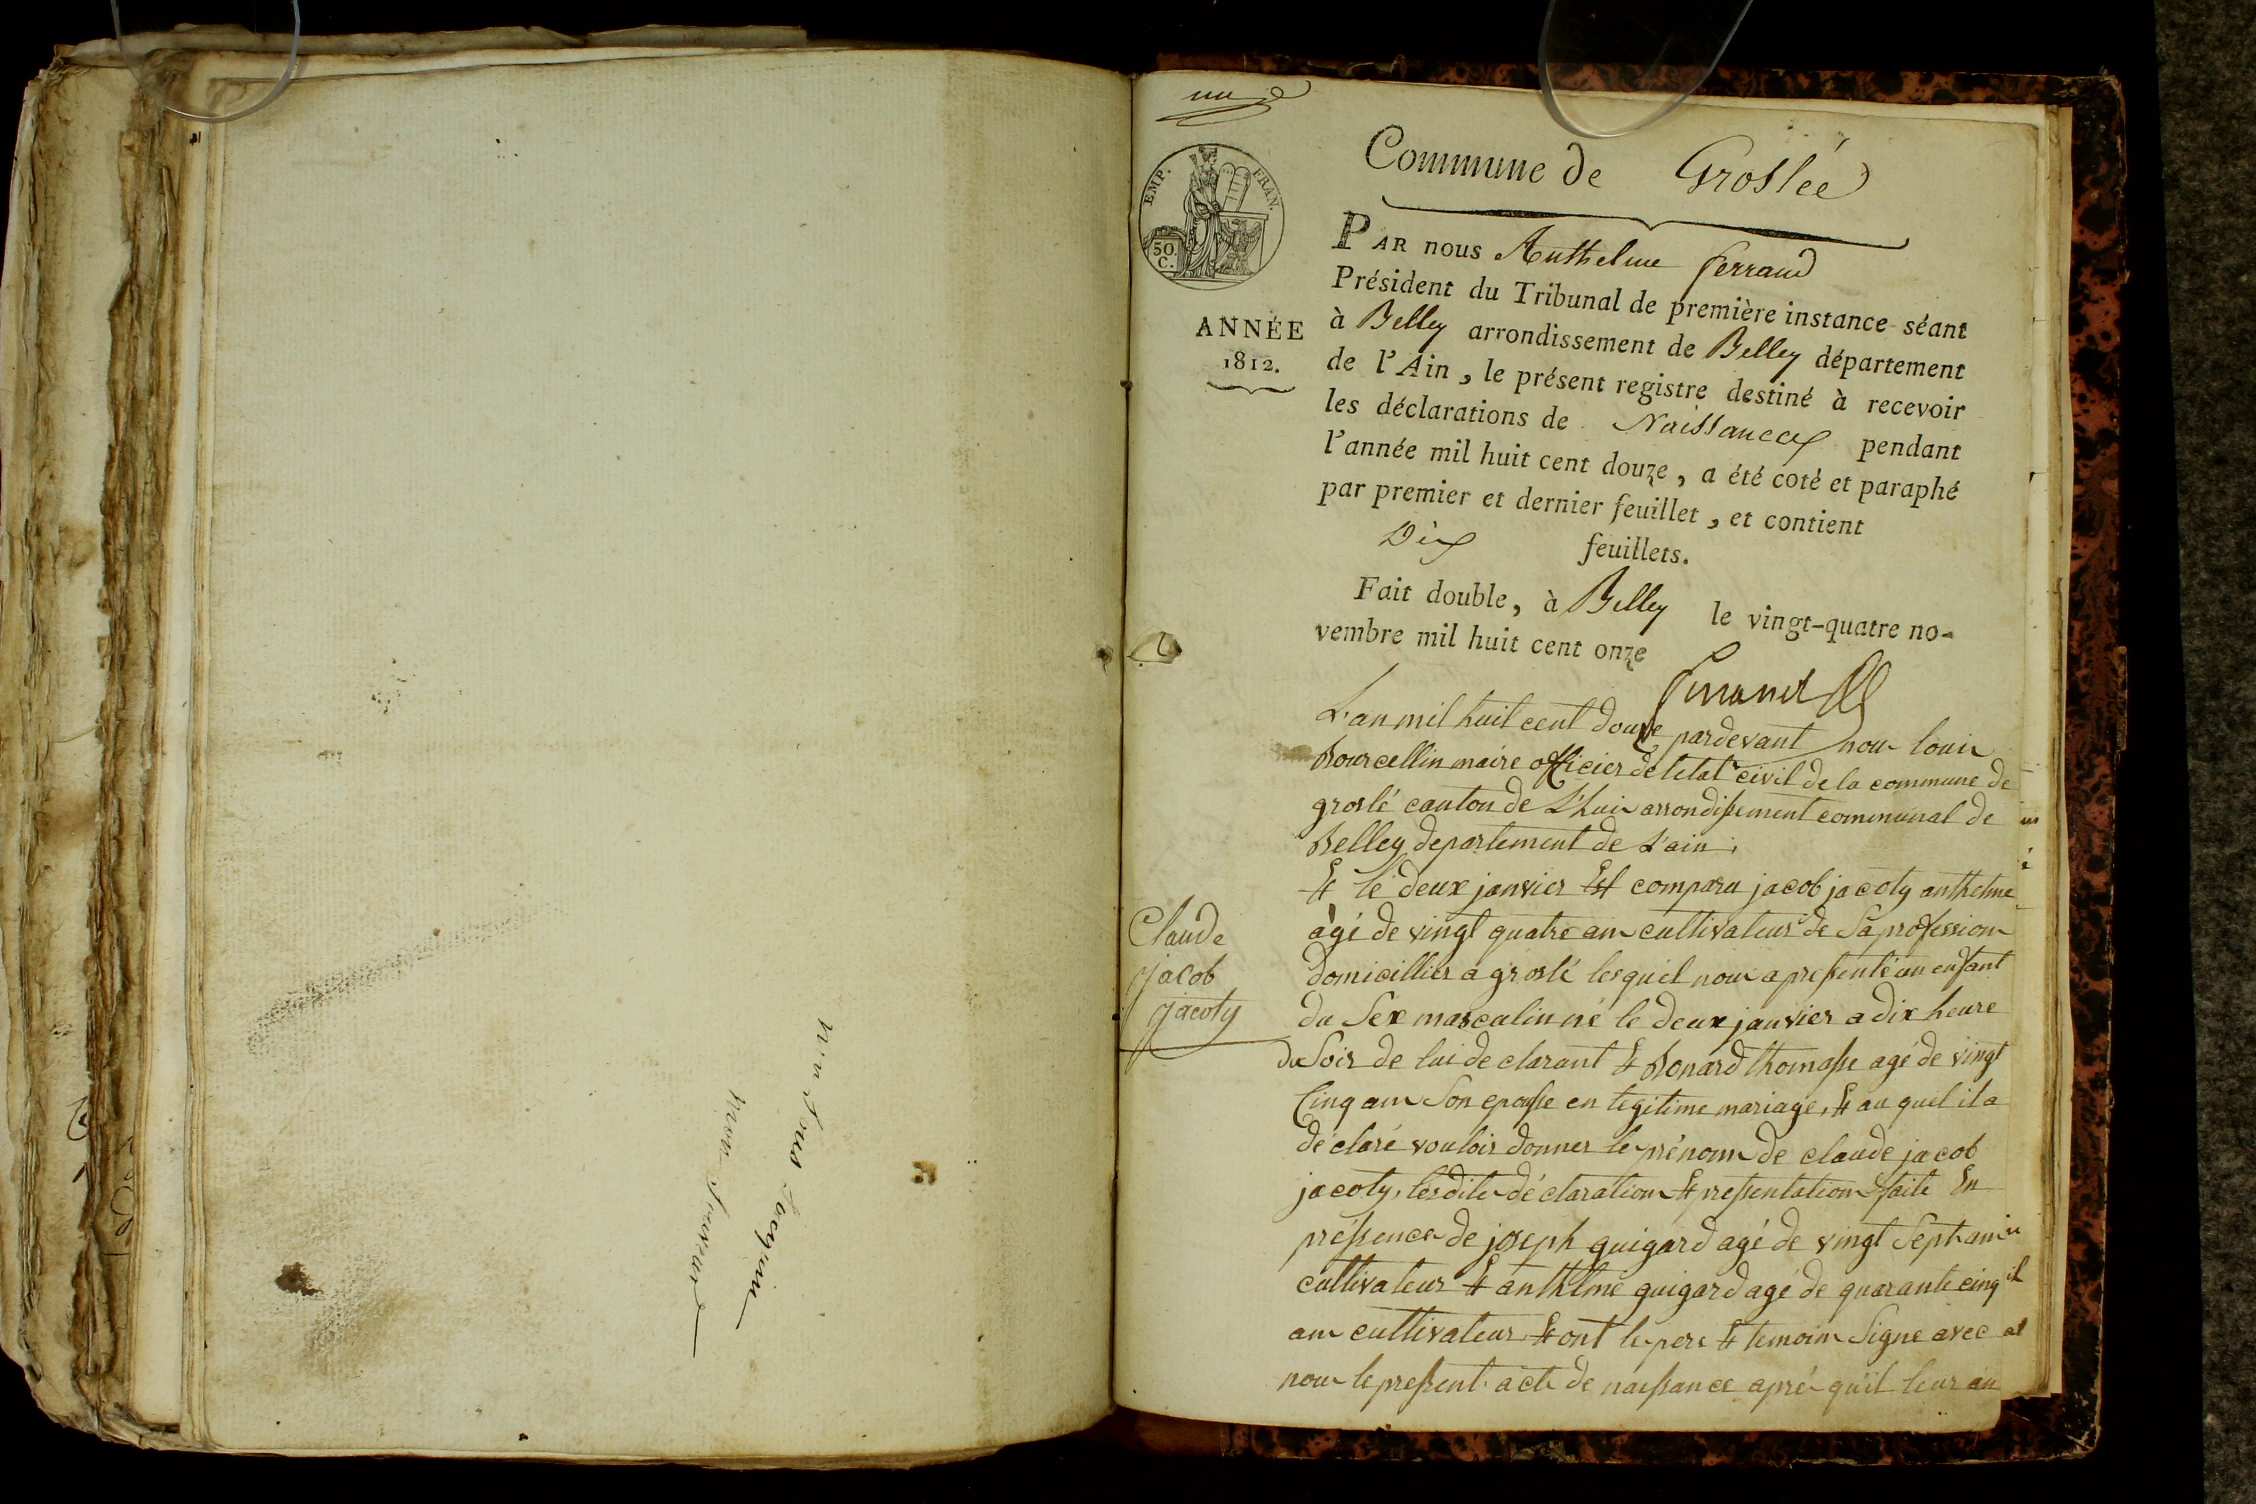 EMP. FRAN.
50.
C.
ANNÉE
1812.
Commune de Groslée
PAR nous Anthelme ferrand
Président du Tribunal de première instance séant
à Belley arrondissement de Belley département
de l'Ain, le présent registre destiné à recevoir
les déclarations de Naissances pendant
l'année mil huit cent douze, a été coté et paraphé
par premier et dernier feuillet, et contient
Dix feuillets.
Fait double, à Belley le vingt-quatre no-
vembre mil huit cent onze
ferrand
L'an mil huit cent douze pardevant nous louis
Bourcellin maire officier de letat civil de la commune de
groslé canton de L'huis arrondissement communal de
Belley departement de L'ain.
Et le deux janvier Est comparu jacob jacoty anthelme
àgé de vingt quatre ans cultivateur de Sa profession
domicillier a groslé lesquel nous a pressenté un enfant
du Sex masculin né le deux janvier a dix heure
du Soir de lui declarant Et Bonard thomasse agé de vingt
Cinq ans Son epousse en legitime mariage, Et au quel il a
déclaré vouloir donner le prénom de claude jacob
jacoty, lesdite déclaration Et pressentation faite En
préssence de joseph guigard agé de vingt Sept ans
cultivateur Et anthlme guigard agé de quarante cinq
ans cultivateur, Et ont le pere Et temoins Signe avec
nous le pressent acte de naissance aprés qu'il leur an
Claude
jacob
jacoty